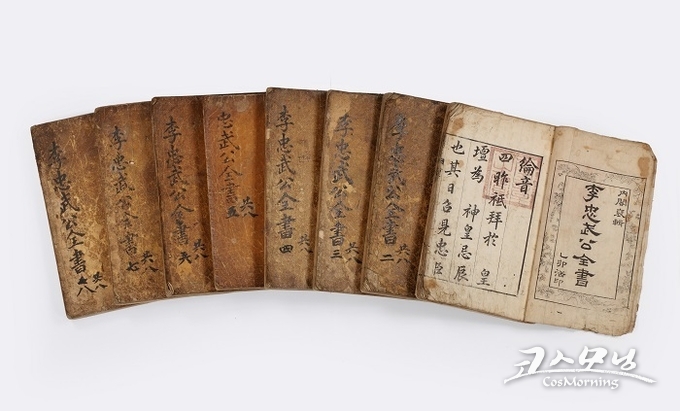 內閣裒輯
李忠武公全書
乙卯活印
綸音
昨祗拜於 皇
壇為 神皇忌辰
也其日召見忠臣
李忠武公全書 二
共八
李忠武公全書 三
共八
李忠武公全書 四
共八
忠武公全書 五
共八
李忠武公全書 六
共八
李忠武公全書 七
共八
李忠武公全書 八
共八
코스모닝
CosMorning